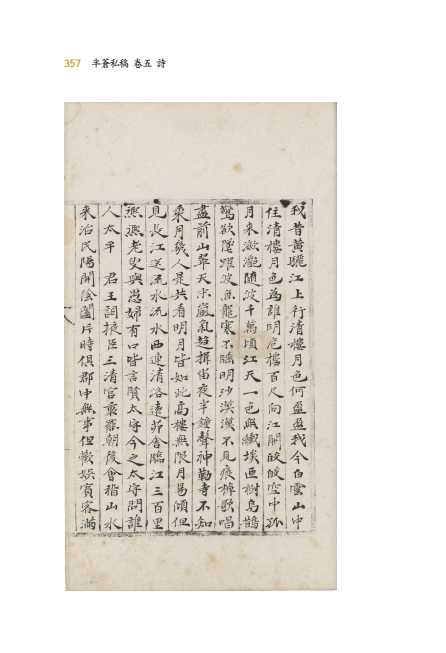 357 半蒼私稿 卷五 詩
我昔黃驪江上行清樓月色何盈盈我今白雲山中
住清樓月色為誰明危樓百尺向江開皎皎空中孤
月來瀲灩隨波千萬頃江天一色無纖埃匝樹烏鵲
驚欲墮躍波魚龍寒不臥明沙漠漠不見痕棹歌唱
盡前山翠天末嵐氣超揖笛夜半鐘聲神勒寺不知
乘月幾人是共看明月皆如此高樓無限月易傾但
見長江送流水流水西連清洛遠茆舍臨江三百里
熙熙老叟與愚婦有口皆言賢太守今之太守問誰
人太平 君王詞掖臣三清官棄罷朝後會稽山水
來治民陽開陰闔片時俱郡中無事但歡娛賓客滿